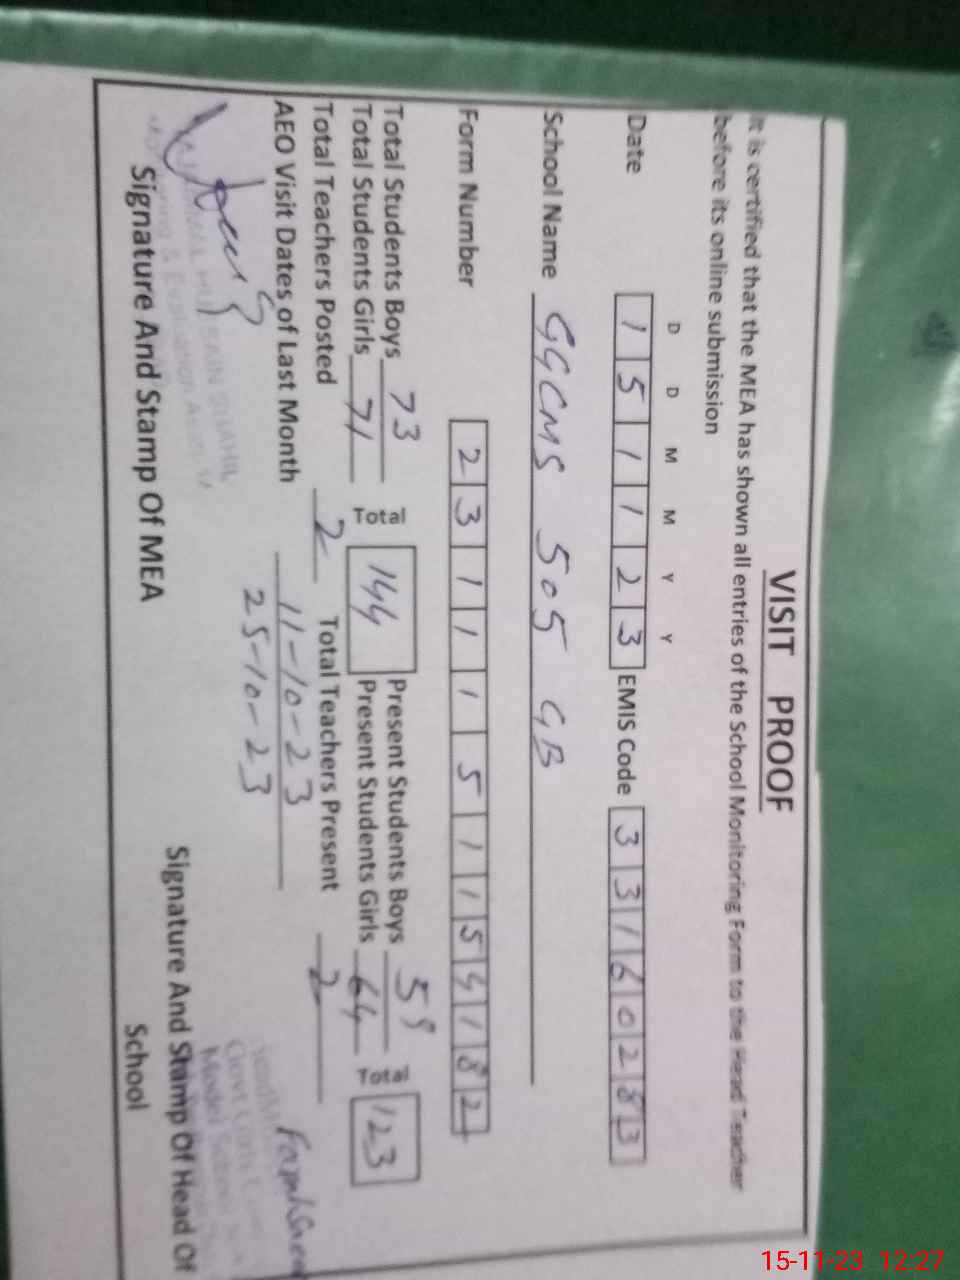 VISIT PROOF
It is certified that the MEA has shown all entries of the School Monitoring Form to the Head Teacher
before its online submission
D D M M Y Y
Date 1 5 1 1 2 3 EMIS Code 3 3 1 6 0 2 8 3
School Name GGCMS 505 GB
Form Number 2 3 1 1 1 5 1 1 5 4 1 8 2
Total Students Boys 73 Total 144 Present Students Boys 59 Total 123
Total Students Girls 71 Present Students Girls 64
Total Teachers Posted 2 Total Teachers Present 2
AEO Visit Dates of Last Month 11-10-23
25-10-23
Signature And Stamp Of MEA
Signature And Stamp Of Head Of
School
15-11-23 12:27